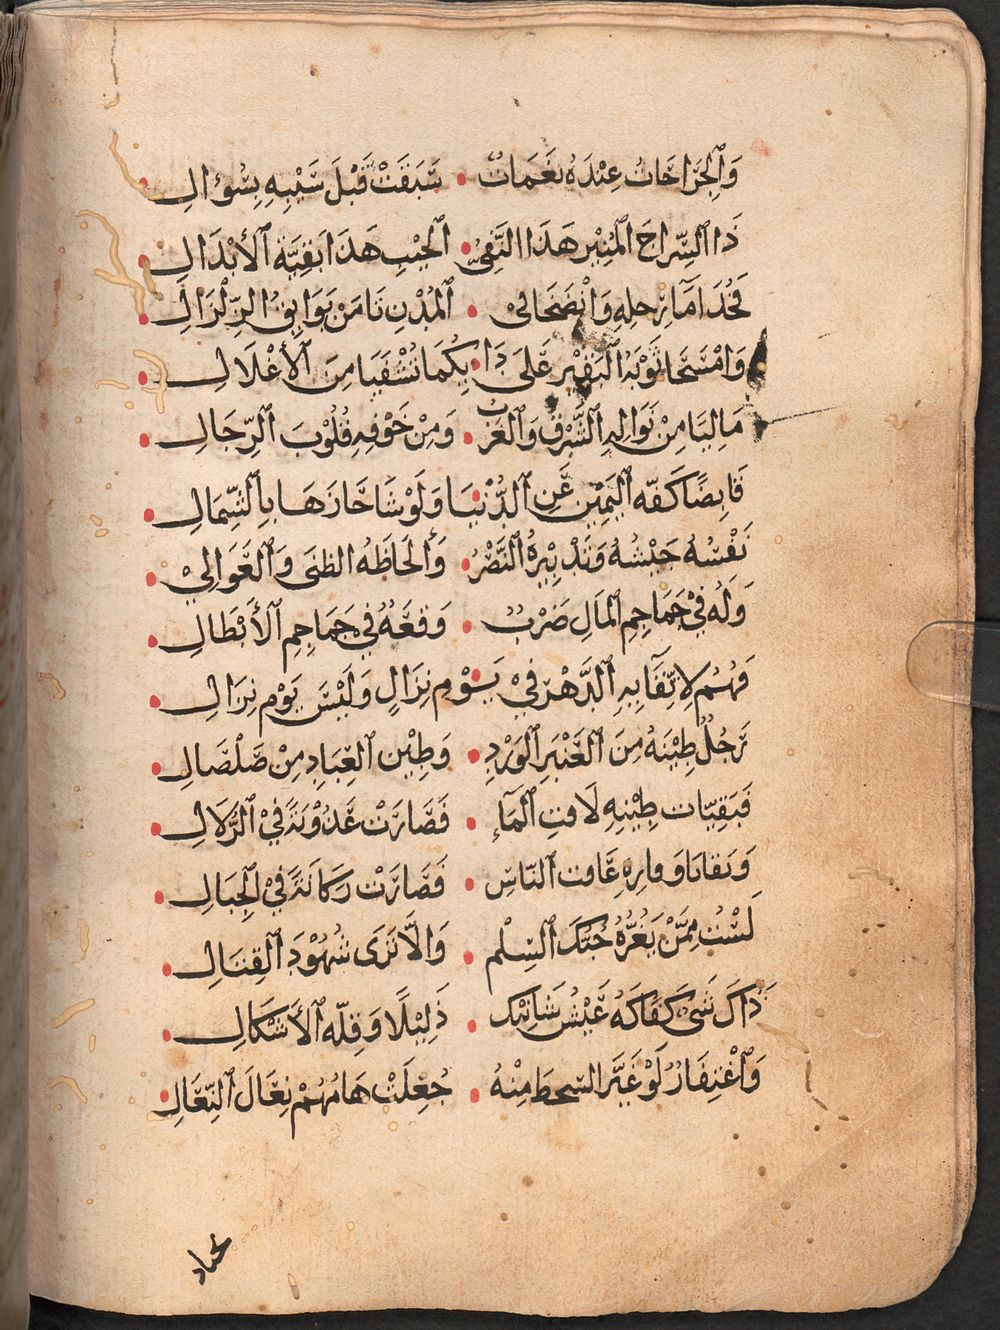 وَالْجَرَاحَاتُ عِنْدَهُ نَغَمَاتٌ • سَبَقَتْ قَبْلَ سَيْبِهِ بِسُؤالِ
ذَا السِّرَاجُ الْمُنِيْرُ هَذَا النَّقِيُّ • الْجَيْبِ هَذَا بَقِيَّةُ الْأَبْدَالِ
فَخُذَا مَآءَ رِجْلِهِ وَانْضَحَا فِيْ • الْمُدْنِ تَامَنْ بَوَائِقَ الزِّلْزَالِ
وَامْسَحَا ثَوْبَهُ الْبَقِيْرَ عَلَى دَا • ئِكُمَا تُشْفَيَا مِنَ الْأَعْلَالِ
مَالِيًا مِنْ نَوَالِهِ الشَّرْقَ وَالْغَرْبَ • وَمِنْ خَوْفِهِ قُلُوْبَ الرِّجَالِ
قَابِضًا كَفّهُ الْيَمِيْنَ عَنِ الدُّنْيَا وَلَوْ شَا حَازَهَا بِالشِّمَالِ
نَفْسُهُ جَيْشُهُ وَتَدْبِيْرُهُ النَّصْرُ • وَأَلْحَاظُهُ الظبَى وَالْعَوَالِيْ
وَلَهُ فِيْ جَمَاجِمِ الْمَالِ ضَرْبٌ • وَقعُهُ فِيْ جَمَاجِمِ الْأَبْطَالِ
فَهُمُ لِاتِّقَآئِهِ الدَّهْرَ فِيْ يَوْمِ نِزَالٍ وَلَيْسَ يَوْمَ نِزَالِ
رَجُلٌ طِيْنُهُ مِنَ الْعَنْبَرِ الْوَرْدِ • وَطِيْنُ الْعِبَادِ مِنْ صَلْصَالِ
فَبَقِيّات طِيْنِهِ لَاقتِ الْمَآءَ • فَصَارَتْ عُذُوْبَةً فِيْ الزُّلَالِ
وَبَقايَا وَقارِهِ عَافت النّاسَ • فَصَارَتْ رَكَانَةً فِيْ الْجِبَالِ
لَسْتُ مِمَّنْ يَغُرُّهُ حُبّكَ السِّلْم • وَالَّا تَرَى شُهُوْدَ الْقِتَالِ
ذَاكَ شَيءٌ كَفَاكَهُ عَيْشُ شَانِيْكَ • ذَلِيْلًا وَقِلّة الْأَشْكَالِ
وَاغْتِفَارٌ لَوْ غَيَّرَ السّخطَ مِنْهُ • جُعِلَتْ هَامُهُمْ نِعَالَ النِّعَالِ
لجياد